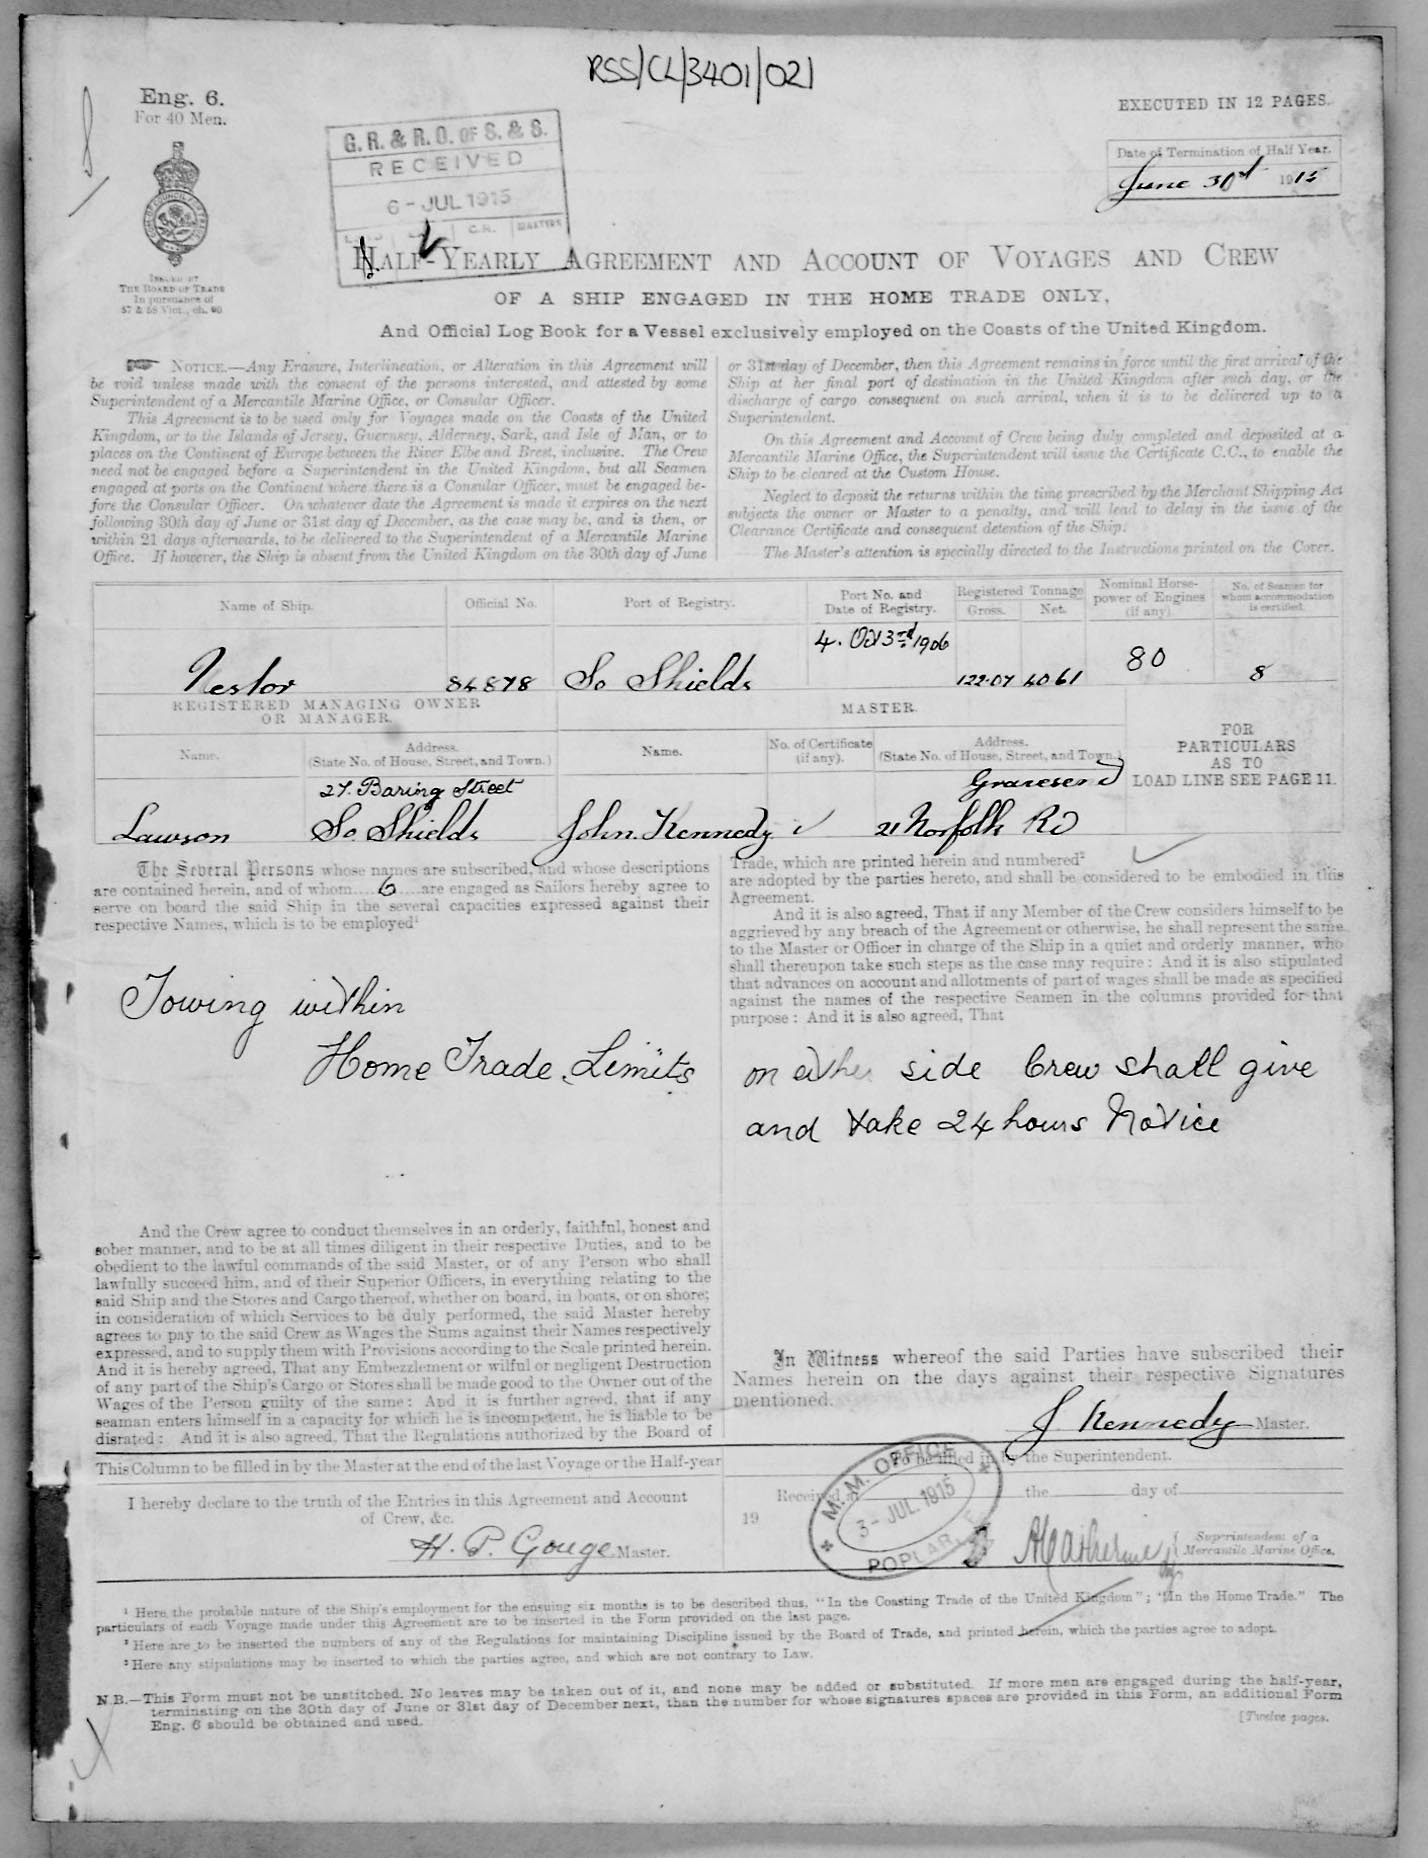 RSS/CL/3401/021
Eng. 6.
For 40 Men.
EXECUTED IN 12 PAGES.
G. R. & R. O. OF S. & S.
RECEIVED
6 - JUL 1915
C.R.
MASTERS
Date of Termination of Half Year.
June 30th 1915
ISSUED BY
THE BOARD OF TRADE
In pursuance of
57 & 58 Vict., ch. 60
HALF-YEARLY AGREEMENT AND ACCOUNT OF VOYAGES AND CREW
OF A SHIP ENGAGED IN THE HOME TRADE ONLY,
And Official Log Book for a Vessel exclusively employed on the Coasts of the United Kingdom.
NOTICE.—Any Erasure, Interlineation, or Alteration in this Agreement will
be void unless made with the consent of the persons interested, and attested by some
Superintendent of a Mercantile Marine Office, or Consular Officer.
This Agreement is to be used only for Voyages made on the Coasts of the United
Kingdom, or to the Islands of Jersey, Guernsey, Alderney, Sark, and Isle of Man, or to
places on the Continent of Europe between the River Elbe and Brest, inclusive. The Crew
need not be engaged before a Superintendent in the United Kingdom, but all Seamen
engaged at ports on the Continent where there is a Consular Officer, must be engaged be-
fore the Consular Officer. On whatever date the Agreement is made it expires on the next
following 30th day of June or 31st day of December, as the case may be, and is then, or
within 21 days afterwards, to be delivered to the Superintendent of a Mercantile Marine
Office. If however, the Ship is absent from the United Kingdom on the 30th day of June
or 31st day of December, then this Agreement remains in force until the first arrival of the
Ship at her final port of destination in the United Kingdom after such day, or the
discharge of cargo consequent on such arrival, when it is to be delivered up to a
Superintendent.
On this Agreement and Account of Crew being duly completed and deposited at a
Mercantile Marine Office, the Superintendent will issue the Certificate C.C., to enable the
Ship to be cleared at the Custom House.
Neglect to deposit the returns within the time prescribed by the Merchant Shipping Act
subjects the owner or Master to a penalty, and will lead to delay in the issue of the
Clearance Certificate and consequent detention of the Ship.
The Master's attention is specially directed to the Instructions printed on the Cover.
Name of Ship.
Official No.
Port of Registry.
Port No. and
Date of Registry.
Registered Tonnage
Gross.
Net.
Nominal Horse-
power of Engines
(if any)
No. of Seamen for
whom accommodation
is certified.
Nestor
84878
So Shields
4. Oct 3rd 1906
122.07
40.61
80
8
REGISTERED MANAGING OWNER
OR MANAGER.
MASTER.
FOR
PARTICULARS
AS TO
LOAD LINE SEE PAGE 11.
Name.
Address.
(State No. of House, Street, and Town.)
Name.
No. of Certificate
(if any).
Address.
(State No. of House, Street, and Town.)
Lawson
27. Baring Street
So. Shields
John. Kennedy
Gravesend
21 Norfolk Rd
The Several Persons whose names are subscribed, and whose descriptions
are contained herein, and of whom 6 are engaged as Sailors hereby agree to
serve on board the said Ship in the several capacities expressed against their
respective Names, which is to be employed¹
Towing within
Home Trade Limits
And the Crew agree to conduct themselves in an orderly, faithful, honest and
sober manner, and to be at all times diligent in their respective Duties, and to be
obedient to the lawful commands of the said Master, or of any Person who shall
lawfully succeed him, and of their Superior Officers, in everything relating to the
said Ship and the Stores and Cargo thereof, whether on board, in boats, or on shore;
in consideration of which Services to be duly performed, the said Master hereby
agrees to pay to the said Crew as Wages the Sums against their Names respectively
expressed, and to supply them with Provisions according to the Scale printed herein.
And it is hereby agreed, That any Embezzlement or wilful or negligent Destruction
of any part of the Ship's Cargo or Stores shall be made good to the Owner out of the
Wages of the Person guilty of the same: And it is further agreed, that if any
seaman enters himself in a capacity for which he is incompetent, he is liable to be
disrated: And it is also agreed, That the Regulations authorized by the Board of
Trade, which are printed herein and numbered²
are adopted by the parties hereto, and shall be considered to be embodied in this
Agreement.
And it is also agreed, That if any Member of the Crew considers himself to be
aggrieved by any breach of the Agreement or otherwise, he shall represent the same
to the Master or Officer in charge of the Ship in a quiet and orderly manner, who
shall thereupon take such steps as the case may require: And it is also stipulated
that advances on account and allotments of part of wages shall be made as specified
against the names of the respective Seamen in the columns provided for that
purpose: And it is also agreed, That
on either side Crew shall give
and take 24 hours Notice
In Witness whereof the said Parties have subscribed their
Names herein on the days against their respective Signatures
mentioned.
J Kennedy Master.
This Column to be filled in by the Master at the end of the last Voyage or the Half-year
I hereby declare to the truth of the Entries in this Agreement and Account
of Crew, &c.
H. P. Gouge Master.
To be filled in by the Superintendent.
Received at the day of
19
M. M. OFFICE
3 - JUL 1915
POPLAR
Superintendent of a
Mercantile Marine Office.
¹ Here, the probable nature of the Ship's employment for the ensuing six months is to be described thus, "In the Coasting Trade of the United Kingdom"; "In the Home Trade." The
particulars of each Voyage made under this Agreement are to be inserted in the Form provided on the last page.
² Here are to be inserted the numbers of any of the Regulations for maintaining Discipline issued by the Board of Trade, and printed herein, which the parties agree to adopt.
³ Here any stipulations may be inserted to which the parties agree, and which are not contrary to Law.
N.B.—This Form must not be unstitched. No leaves may be taken out of it, and none may be added or substituted. If more men are engaged during the half-year,
terminating on the 30th day of June or 31st day of December next, than the number for whose signatures spaces are provided in this Form, an additional Form
Eng. 6 should be obtained and used.
[Twelve pages.